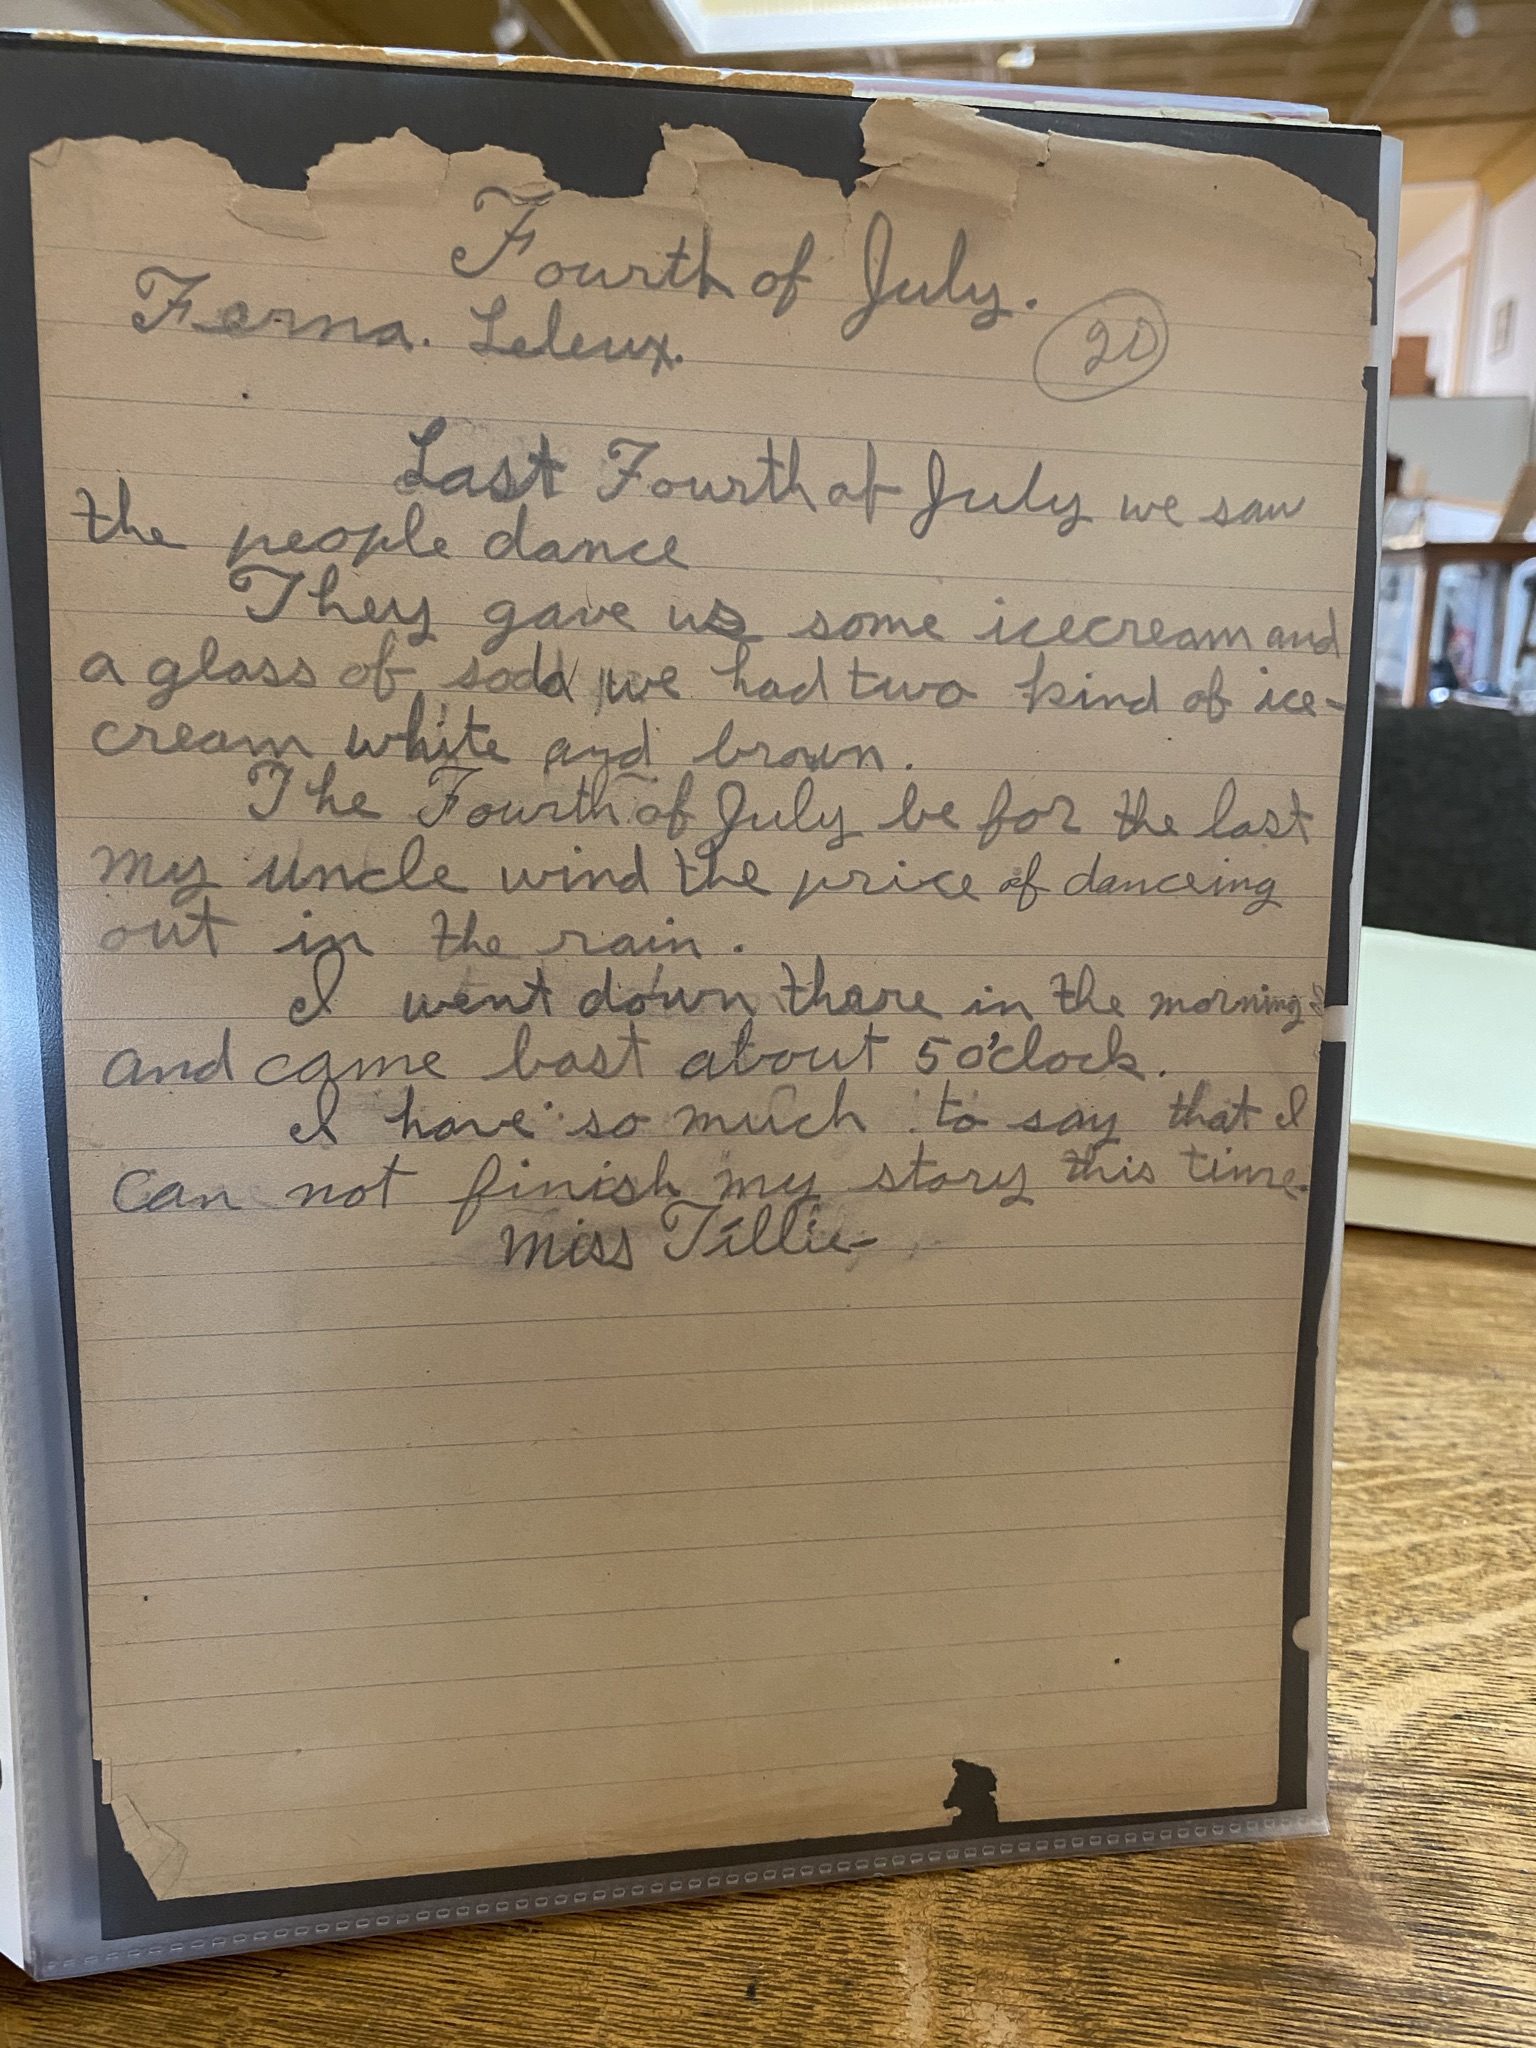 Fourth of July.
Ferna. Leleux.
20
Last Fourth of July we saw
the people dance
They gave us some icecream and
a glass of soda we had two kind of ice-
cream white and brown.
The Fourth of July be for the last
my uncle wind the price of danceing
out in the rain.
I went down thare in the morning
and came bast about 5 o'clock.
I have so much to say that I
can not finish my story this time.
Miss Tillie-